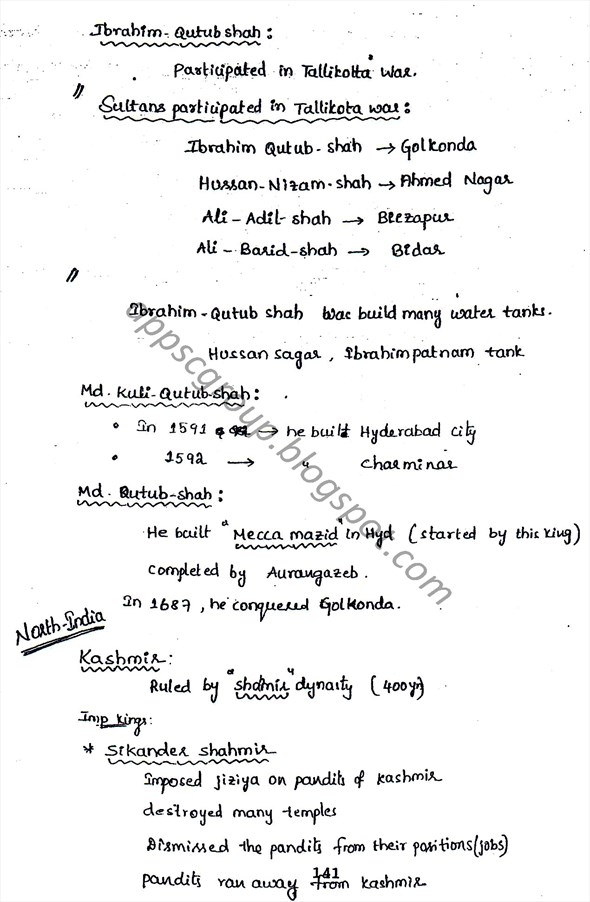 Ibrahim-Qutubshah:
Participated in Tallikotta war.
// Sultans participated in Tallikota war:
Ibrahim Qutub-shah → Golkonda
Hussan-Nizam-shah → Ahmed Nagar
Ali-Adil-shah → Beezapur
Ali-Barid-shah → Bidar
//
Ibrahim-Qutub shah was build many water tanks.
Hussan sagar, Ibrahimpatnam tank
Md. Kuli-Qutubshah:
• In 1591 → he built Hyderabad city
• 1592 → " Charminar
Md. Qutub-shah:
He built "Mecca mazid" in Hyd (started by this king)
completed by Aurangazeb.
In 1687, he conquered Golkonda.
North-India
Kashmir:
Ruled by "shamir" dynasty (400yr)
Imp kings:
* Sikander shahmir
Imposed jiziya on pandits of kashmir
destroyed many temples
Dismissed the pandits from their positions(jobs)
pandits ran away from kashmir
141
appscgroup.blogspot.com